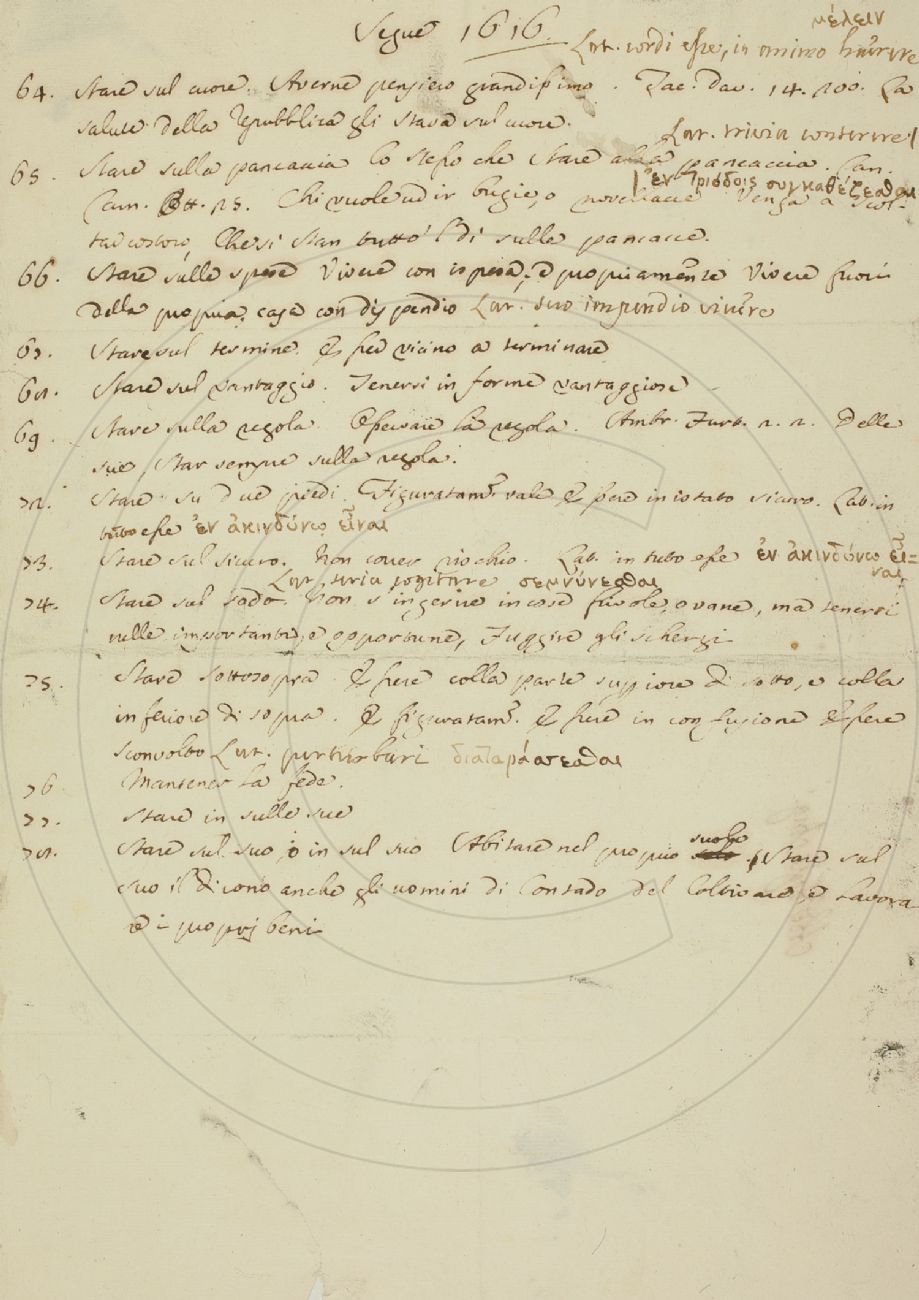 μέλειν
Segue 1616
Lat. cordi esse, in animo haerere
64. Stare sul cuore. Averne pensiero grandissimo. Tac. Dav. 14. 200. La
salute della Repubblica gli stava sul cuore.
Lat. trivia conterere
65. Stare sulla pancaccia lo stesso che Stare alla pancaccia. Can.
ἐν τριόδοις συγκαθέζεσθαι
Carn. Ott. 25. Chi vuole udir bugie, o novellacce Venga a scol-
tar costoro, Che si stan tutto 'l dì sulle pancacce.
66. Stare sulle spese Vivere con ispesa, e propriamente Vivere fuori
della propria casa con dispendio Lat. suo impendio vivere
67. Stare sul termine. Esser vicino a terminare
68. Stare sul vantaggio. Tenersi in forme vantaggiose
69. Stare sulla regola. Osservare la regola. Ambr. Furt. 2. 2. Delle
sue, Star sempre sulla regola.
72. Stare su due piedi. Figuratam. vale Essere in istato sicuro. Lat. in
tuto esse ἐν ἀκινδύνῳ εἶναι
73. Stare sul sicuro. Non correr rischio. Lat. in tuto esse ἐν ἀκινδύνῳ εἶ=
ναι
Lat. seria cogitare σεμνύνεσθαι
74. Stare sul sodo. Non s'ingerire in cose frivole, o vane, ma tenersi
nelle importanti, e opportune, Fuggire gli scherzi
75. Stare sottosopra Essere colla parte supiore di sotto, e colla
inferiore di sopra. E figuratam. Essere in confusione Essere
sconvolto Lat. perturbari διαταράσσεσθαι
76 Mantener la fede.
77. Stare in sulle sue
78. Stare sul suo, o in sul suo Abitare nel proprio suolo. Stare sul
suo il dicono anche gli uomini di Contado del Coltivare, e Lavora
re i proprj beni